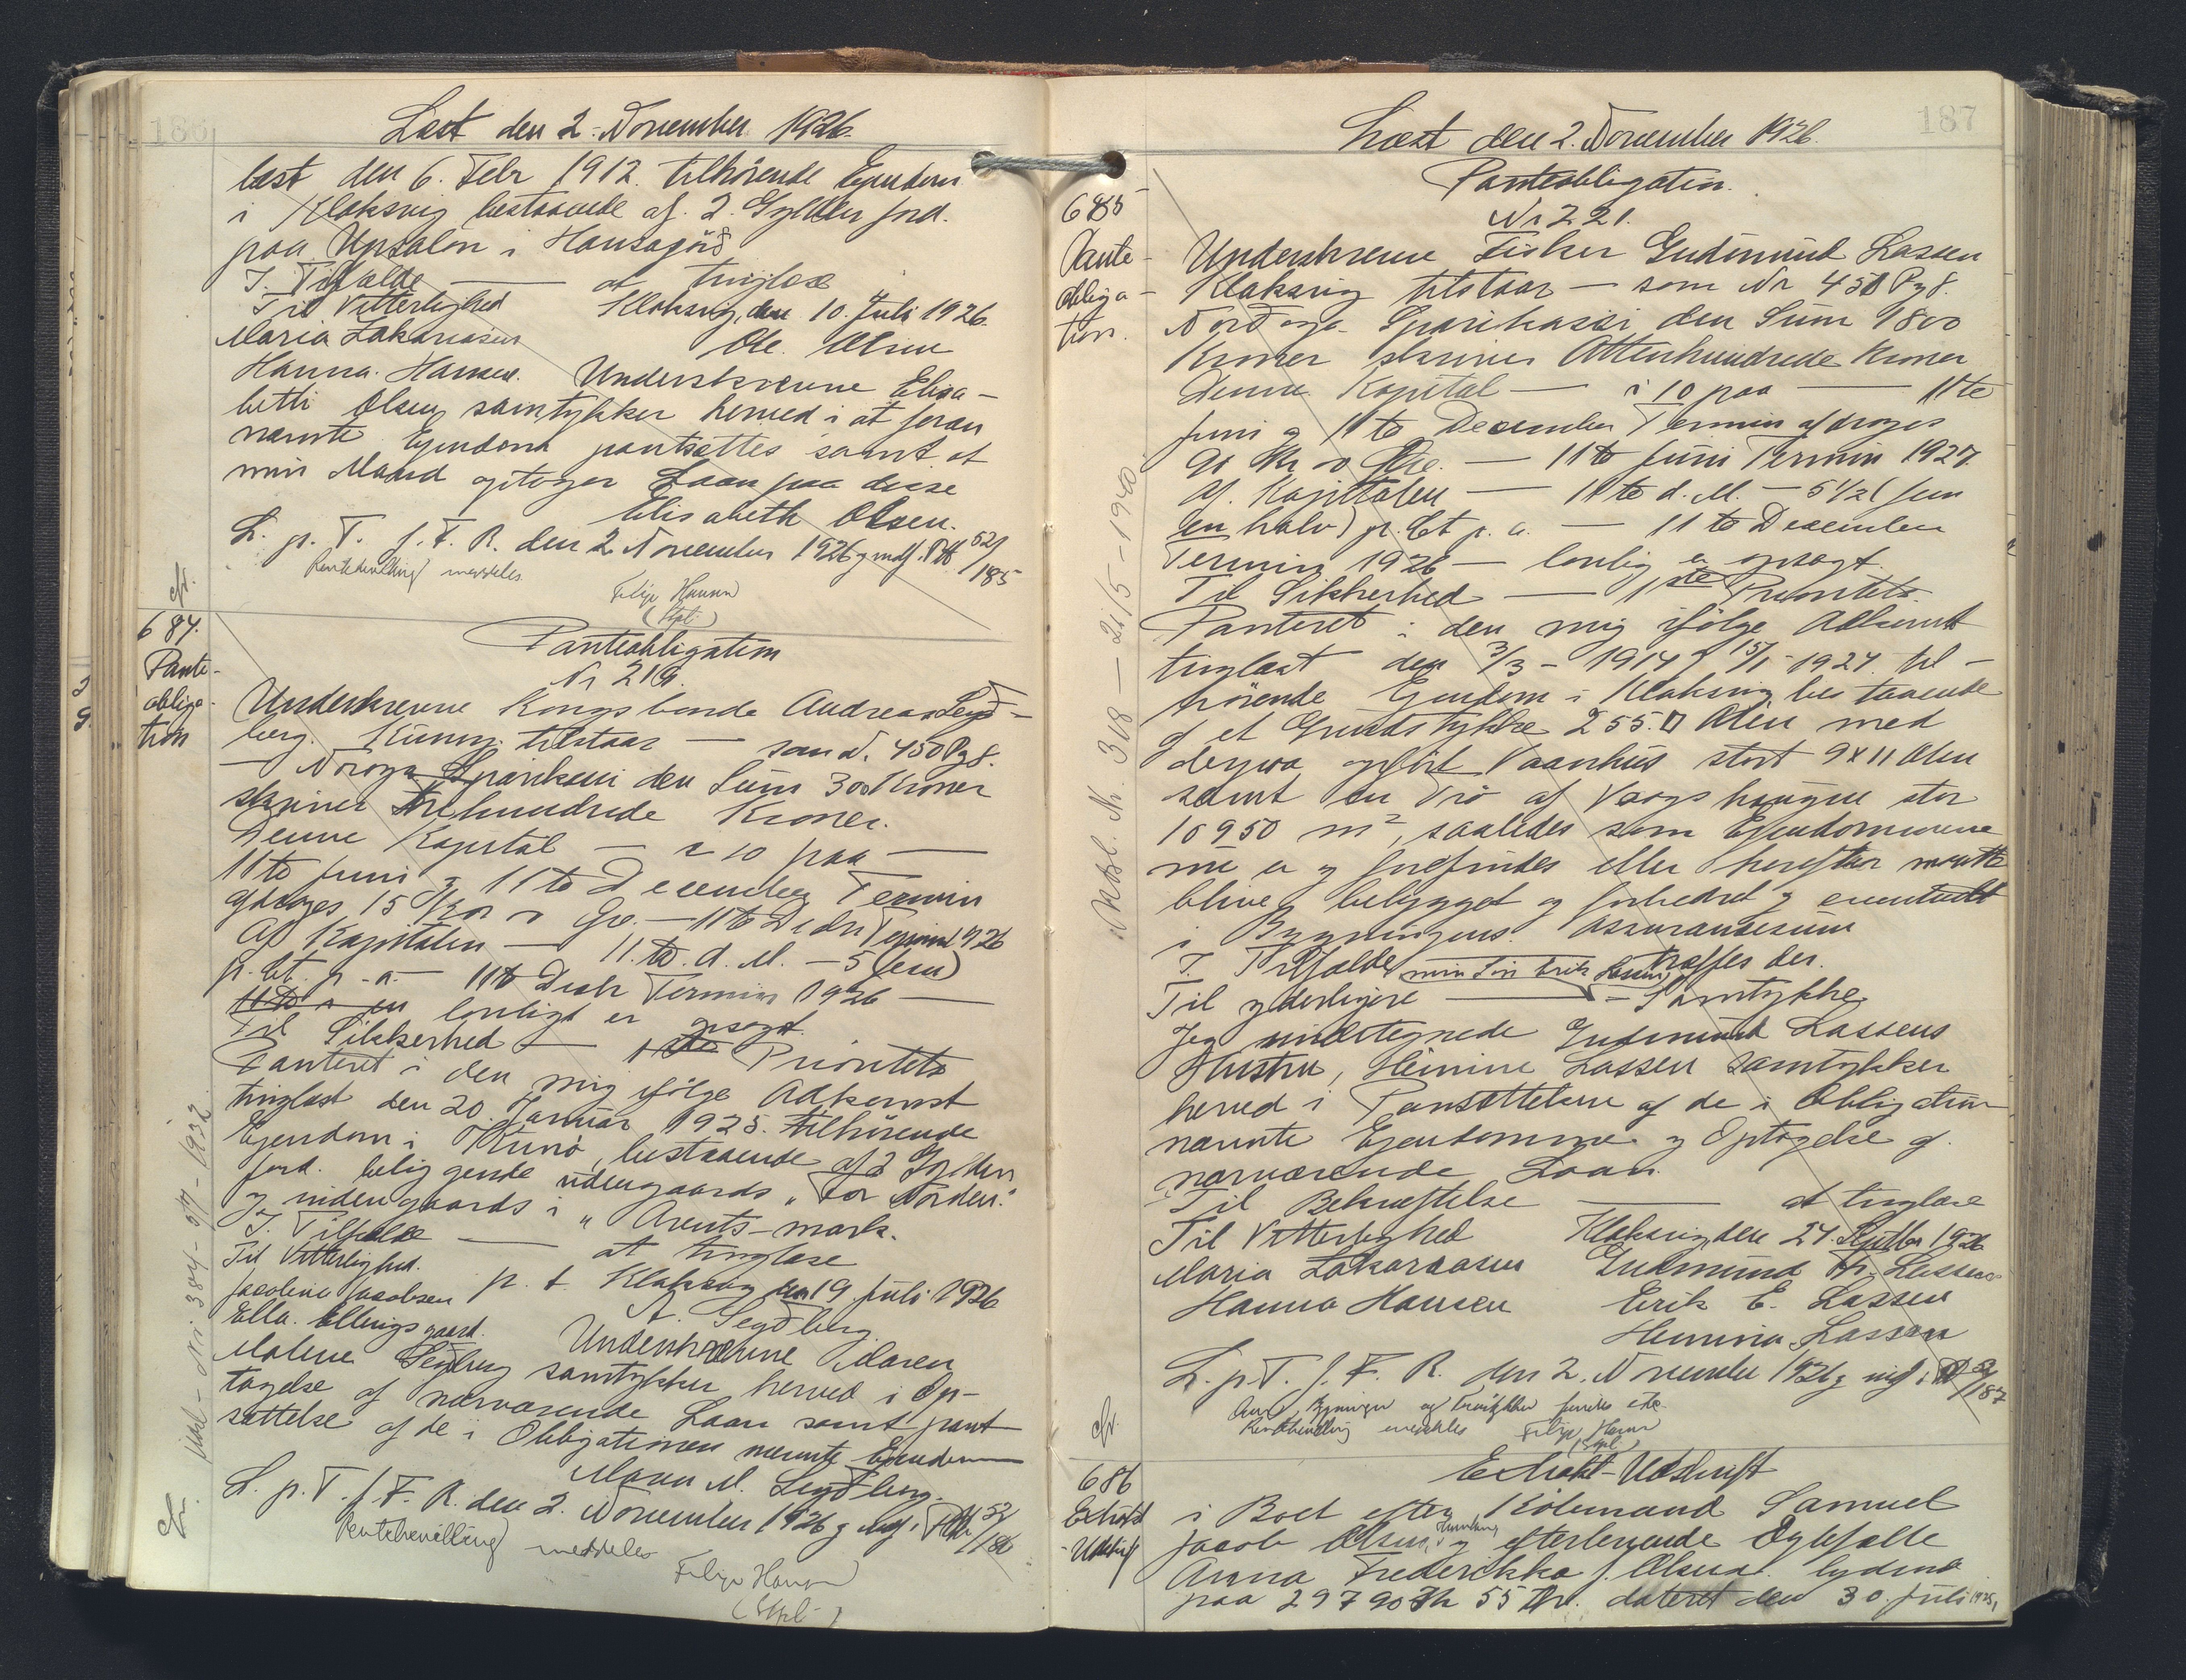 186
Læst den 2. November 1926.
læst den 6. Febr 1912. tilhörende Ejendom
i Klaksvig bestaaende af. 2. Gylden Jord.
paa Upsalön i Hansagörð
I. Tilfælde — at tinglæse
Til Vitterlighed Klaksvig, den 10. Juli 1926.
Maria Zakariasen Ole. Olsen
Hanna. Hansen. Underskrevne Elisa-
betti Olsen samtykker herved i at foran
nævnte Ejendom pantsættes samt at
min Mand optager Laan paa disse
Elisabeth Olsen.
L. p. T. f. F. R. den 2. November 1926 & indf. i Ptb 52/185
Rentebevilling meddeles.
Filip Hansen
(Stpl.)
cfr.
684.
Pante-
obliga-
tion
Panteobligation
Nr 219.
Underskrevne Kongsbonde Andreas Seyð-
berg. Kunoy tilstaar — som N. 450 Pg 8.
— Norðoya Sparikassi den Sum 300 Kroner
skriver Trehundrede Kroner.
Denne Kapital — i 10 paa —
11te Juni & 11te December Termin
afdrages 15 Kr 0 Øre. — 11te Decbr Termin 1926
Af Kapitalen — 11.te. d. M. — 5 (fem)
p. Ct. p. a. — 11te Decbr Termin 1926 —
lovligt er opsagt.
Til Sikkerhed — 1ste Prioritets
Panteret i den mig ifölge Adkomst
tinglæst den 20. Januar 1925. tilhörende
Ejendom i Kunö, bestaaende af 2 Gylden
Jord. beliggende udengaards "For Norden."
og indengaards i "Arents-mark.
I. Tilfælde — at tinglæse
Til Vitterlighed. p. t. Klaksvig den 19. Juli 1926
Jacobine Jacobsen A. Seyðberg.
Ella. Ellingsgaard. Underskrevne Maren
Malene Seyðberg samtykker herved i Op-
tagelse af nærværende Laan samt pant
sættelse af de i Obligationen nævnte Ejendomme
Maren M. Seyðberg.
L. p. T. f. F. R. den 2. November 1926 & indf. i Ptb 52/186
Rentebevilling meddeles
Filip Hansen
(Stpl.)
cfr.
187
Læst den 2. November 1926.
685
Pante-
obliga-
tion.
Panteobligation.
Nr 221.
Underskrevne Fisker Gudmund Lassen
Klaksvig tilstaar — som Nr 450 Pg 8.
Norðoya Sparikassi den Sum 1800
Kroner skriver Attenhundrede Kroner
Denne Kapital — i 10 paa — 11te
Juni & 11te December Termin afdrages
90 Kr 0 Øre. — 11te Juni Termin 1927.
Af. Kapitalen — 11te d. M. — 5 1/2 (fem
en halv) p. Ct p. a. — 11te December
Termin 1926 — lovlig er opsagt.
Til Sikkerhed — 1ste Prioritets
Panteret i den mig ifölge Adkomst
tinglæst den 3/3 - 1914 & 15/1 1924 til-
hörende Ejendom i Klaksvig bestaaende
af et Grundstykke 255. □ Alen med
derpaa opfört Vaanhus stort 9 x 11 Alen
samt en Trö af Vaags haugen stor
10950 m², saaledes som Ejendommene
nu er & forefindes eller herefter maatte
blive bebygget og forbedret & eventuelt
i Bygningens Assurancesum
I. Tilfælde min Sön Erik Lassen træffes der.
Til yderligere — Samtykke.
Jeg undertegnede Gudmund Lassens
Hustru, Heinine Lassen samtykker
herved i Pansættelsen af de i Obligation
nævnte Ejendomme & Optagelse af.
nærværende Laan.
Til Bekræftelse — at tinglæse
Til Vitterlighed Klaksvig, den 24. Septbr 1926
Maria Zakariasen Gudmund Fr. Lassen
Hanna Hansen Erik E. Lassen
Hemina Lassen
L. p. T. f. F. R. den 2. November 1926 & indf. i Ptb 52/187
Rentebevilling meddeles Filip Hansen
(Stpl.)
cfr.
686
Extrakt
-Udskrift
Extrakt-Udskrift
i Boet efter Kölemand Samuel
Jacob Olsen, og efterlevende Ægtefælle
Anna Frederikka J. Olsen. lydende
paa 29790 Kr 55 Øre. dateret den 30. Juli 1925,